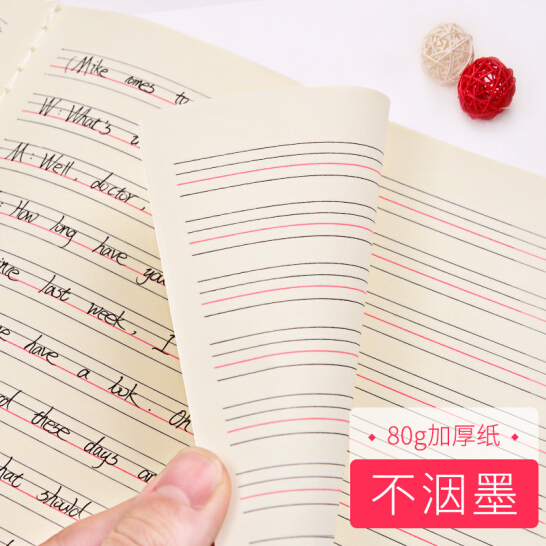 (Mike comes to
W: What's
M: Well, doctor,
How long have you
since last week, I
have a look. Oh
these days
should
80g加厚纸
不洇墨